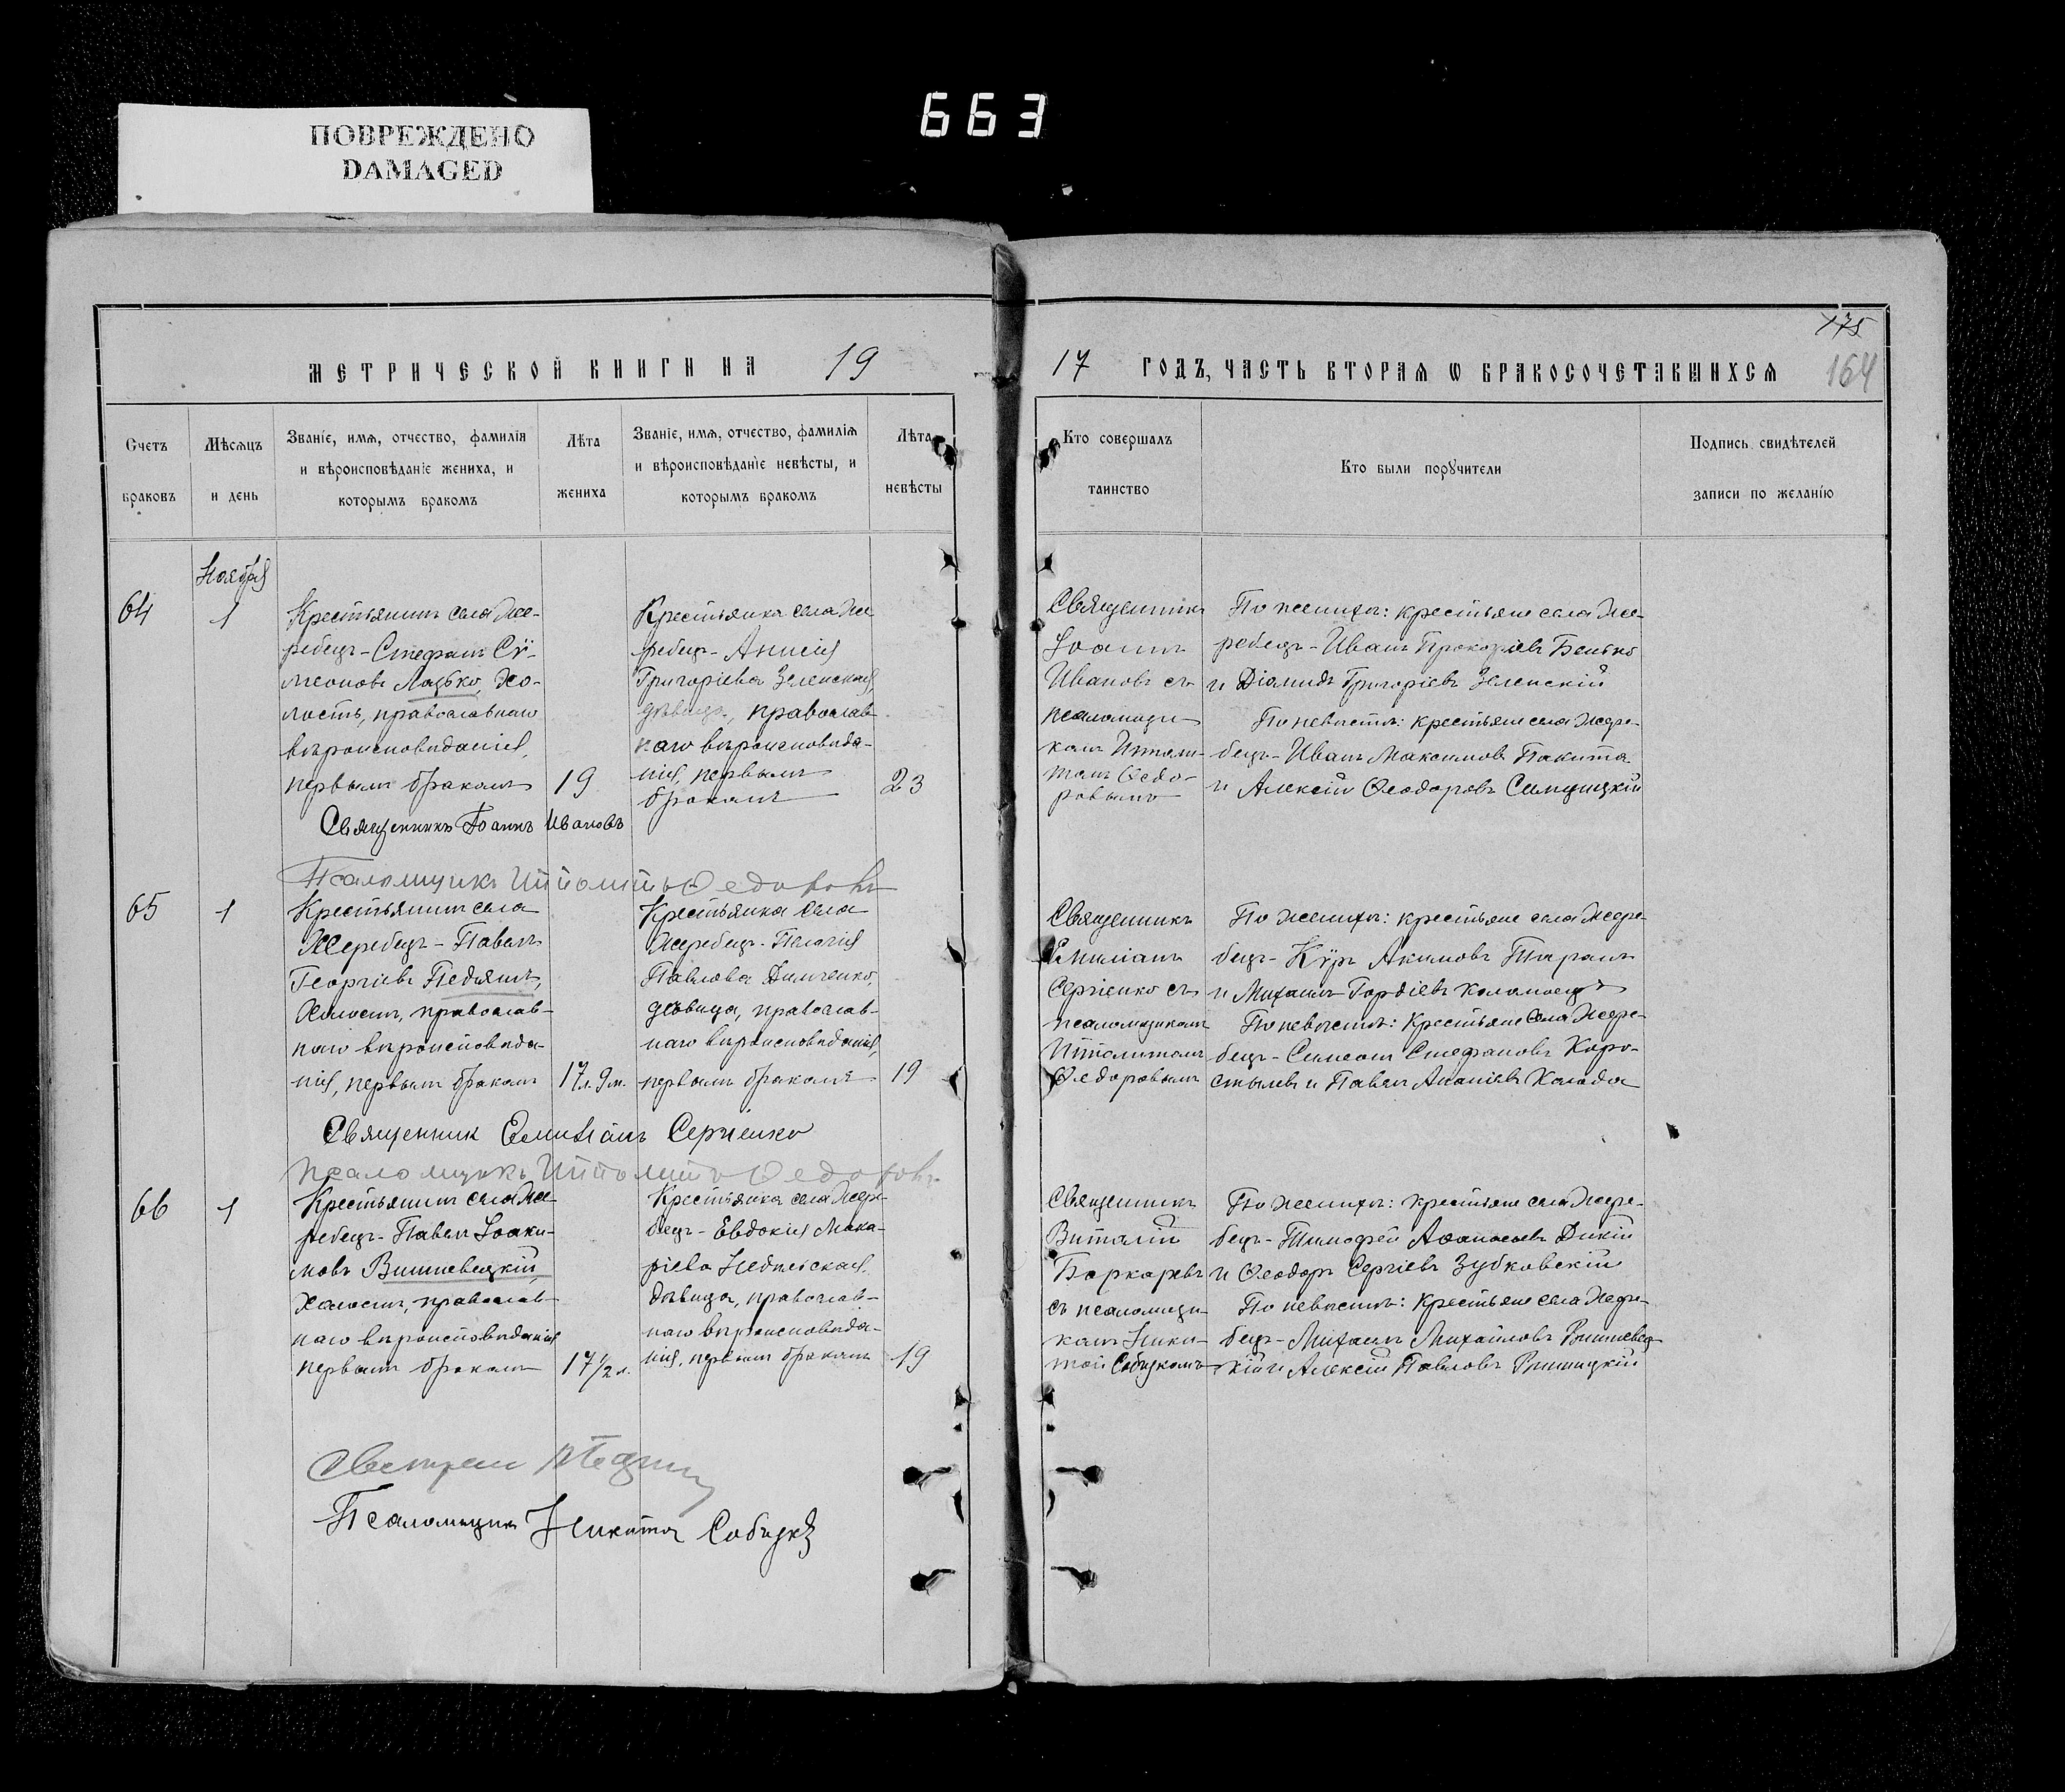 663
ПОВРЕЖДЕНО
DAMAGED
175
164
МЕТРИЧЕСКОЙ КНИГИ НА 19
17 ГОДЪ, ЧАСТЬ ВТОРАЯ Ѡ БРАКОСОЧЕТАВШИХСЯ
Счетъ
браковъ
Мѣсяцъ
и день
Званіе, имя, отчество, фамилія
и вѣроисповѣданіе жениха, и
которымъ бракомъ
Лѣта
жениха
Званіе, имя, отчество, фамилія
и вѣроисповѣданіе невѣсты, и
которымъ бракомъ
Лѣта
невѣсты
Кто совершалъ
таинство
Кто были поручители
Подпись свидѣтелей
записи по желанію
Ноября
64
1
Крестьянинъ села Же-
ребецъ - Стефанъ Сѵ-
меоновъ Лазько, Хо-
лостъ, православнаго
вѣроисповѣданія,
первымъ бракомъ
19
Крестьянка села Же
ребецъ - Анисія
Григоріева Зеленская,
дѣвица, православ-
наго вѣроисповѣда-
нія, первымъ
бракомъ
23
Священникъ
Іоаннъ
Ивановъ съ
псаломщи-
комъ Иппали-
томъ Ѳедо-
ровымъ
По женихѣ: крестьяне села Же-
ребецъ - Иванъ Прокопіевъ Бенько
и Діамидъ Григоріевъ Зеленскій
По невѣстѣ: крестьяне села Жере-
бецъ - Иванъ Максимовъ Пакита
и Алексій Ѳеодоровъ
Священникъ Іоаннъ Ивановъ
Псаломщикъ Ипполитъ Ѳедоровъ
65
1
Крестьянинъ села
Жеребецъ - Павелъ
Георгіевъ Педьянъ,
Холостъ, православ-
наго вѣроисповѣда-
нія, первымъ бракомъ
17 л. 9 м.
Крестьянка села
Жеребецъ - Пелагія
Павлова Димченко,
дѣвица, православ-
наго вѣроисповѣданія,
первымъ бракомъ
19
Священникъ
Емиліанъ
Сергіенко съ
псаломщикомъ
Ипполитомъ
Ѳедоровымъ
По женихѣ: крестьяне села Жере-
бецъ - Кѵръ Акимовъ Таранъ
и Михаилъ Гордіевъ Каламоецъ
По невѣстѣ: Крестьяне села Жере-
бецъ - Симеонъ Стефановъ Коро-
стылевъ и Павелъ Ананіевъ Калода
Священник Емиліанъ Сергіенко
Псаломщикъ Ипполитъ Ѳедоровъ
66
1
Крестьянинъ села Же-
ребецъ - Павелъ Іоаки-
мовъ Вишневецкій,
Холостъ, православ-
наго вѣроисповѣданія
первымъ бракомъ
17 1/2 л.
Крестьянка села Жере-
бецъ - Евдокія Мака-
ріева
дѣвица, православ-
наго вѣроисповѣда-
нія, первымъ бракомъ
19
Священникъ
Виталій
Боркаревъ
съ псаломщи-
комъ Ники-
той Собецкомъ
По женихѣ: крестьяне села Жере-
бецъ - Тимофей Аѳанасьевъ Дикій
и Ѳеодоръ Сергіевъ Зубковскій
По невѣстѣ: Крестьяне села Жере-
бецъ - Михаилъ Михайловъ Вишневец-
кій и Алексій Павловъ
Псаломщикъ Никита